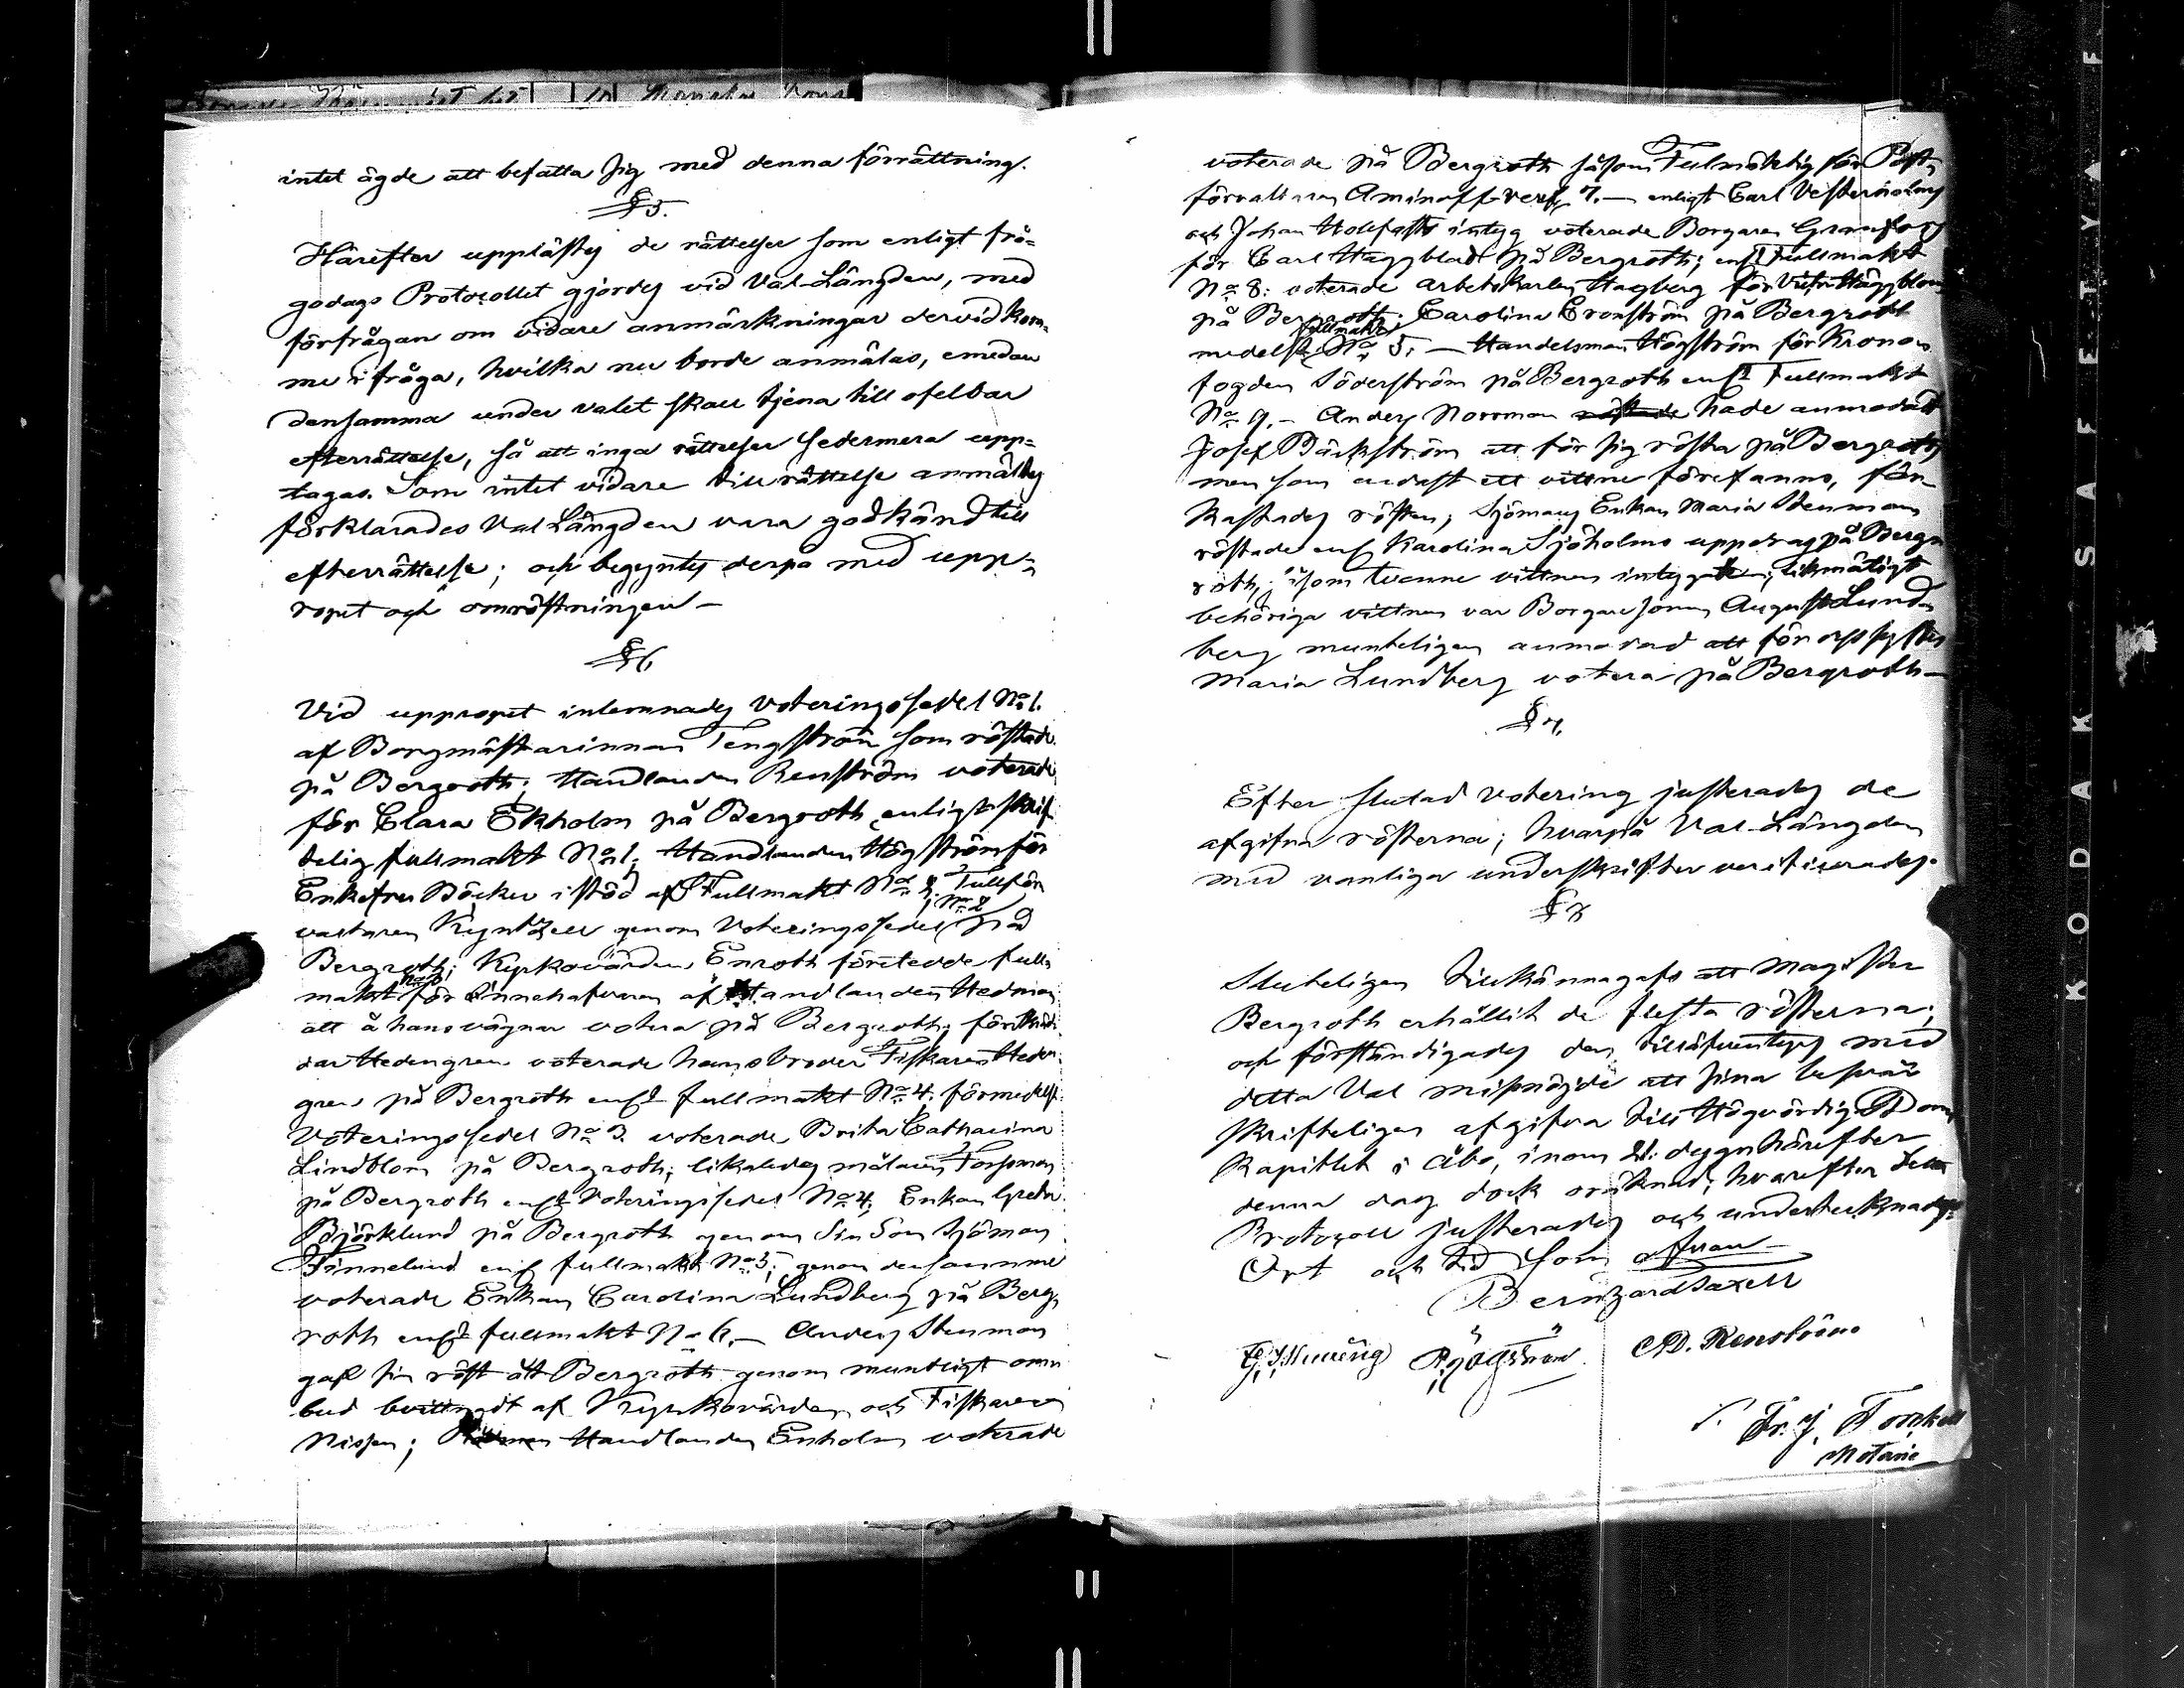 intet ägde att befatta sig med denna förrättning.
§ 5.
Härefter upplästes de rättelser som enligt frö-
godags Protocollet gjordes vid Val-Längden, med
förfrågan om vidare anmärkningar dervid kom-
me i fråga, hvilka nu borde anmälas, emedan
densamma under valet skall tjena till ofelbar
efterrättelse, så att inga rättelser sedermera upp-
tagas. Som intet vidare till rättelse anmältes
förklarades Val Längden vara godkänd till
efterrättelse; och begyntes derpå med upp-
ropet och omröstningen —
§ 6.
Vid uppropet inlemnades voteringssedel No 1.
af Borgmästarinnan Tengström som röstade
på Bergroth; Handlanden Renström voterade
för Clara Ekholm på Bergroth enligt skrif
telig fullmakt No 1; Handlanden Högström för
Enkefru Böcker i stöd af Fullmakt No 2; Tullför
valtaren Kyntzell genom Voteringssedel No 2 på
Bergroth; Kyrkovärden Enroth företedde full-
makt No 3 för innehafvaren af Handlanden Hedman
att å hans vägnar votera på Bergroth; för
dar Hedengren voterade hans broder Fiskaren Heden
gren på Bergroth enligt fullmakt No 4. förmedelst
Voteringssedel No 3. voterade Brita Catharina
Lindblom på Bergroth; likaledes målaren Forsman
på Bergroth enligt Voteringssedel No 4; Enkan Greta
Björklund på Bergroth genom Sin Son Sjöman
Finnelund enl fullmakt No 5; genom densamme
voterade Enkan Carolina Lundberg på Berg-
roth enligt fullmakt No 6. — Anders Stenman
gaf sin röst åt Bergroth genom muntligt om-
bud bevittnadt af Kyrkovärden och Fiskaren
Nissen; Handlanden Enholm voterade
voterade på Bergroth såsom Fulmäktig för Post-
förvaltaren Aminoff 7. — enligt Carl Vesterholms
och Johan Holfasts intyg voterade Borgaren Granfors
för Carl Häggblad på Bergroth; enligt Fullmakt
No 8: voterade arbetskarlen Hagberg för Häggblom
på Bergroth; Carolina Cronström på Bergroth
medelst fullmakt No 5. — Handelsman Högström för Krono-
fogden Söderström på Bergroth enligt Fullmakt
No 9. — Anders Norrman röstade hade anmodat
Josef Bäckström att för sig rösta på Bergroth
men som endast ett vittne förefanns, för-
kastades rösten; Sjömans Enkan Maria Stenman
röstade enl Karolina Sjöholms uppdrag på Berg-
roth, som tvenne vittnen intygade; likmätigt
behöriga vittnen var Borgaresonen August Lund-
berg munteligen anmodad att för dess syster
Maria Lundberg votera på Bergroth —
§ 7.
Efter slutad votering justerades de
afgifna rösterna; hvarpå Val-Längden
med vanliga underskrifter verificerades.
§ 8
Sluteligen tillkännagafs att Magister
Bergroth erhållit de flesta rösterna;
och förständigades den tilläfventyrs med
detta Val missnöjde att sina besvär
skrifteligen afgifva till Högvördiga Dom
Kapitlet i Åbo, inom 21. dygn härefter
denna dag dock oräknad; hvarefter detta
Protocoll justerades och undertecknades.
Ort och tid som ofvan —
Bernhard Saxell
A.D. Renström
Fr. J. Forsell
Notarie